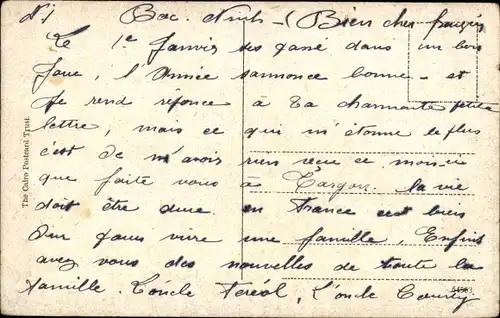 N° 1 Bac. Ninh - (Bien cher françois
Le 1e Janvier ses passé dans un bois
Joue, l'Année sannonce bonne - et
Je rend réponce à Ta charmante petite
lettre, mais ce qui m'étonne le plus
c'est de n'avois rien recue ce mois-ci
que faite vous à Targon. la vie
doit être dure. en France c'est bien
Dur pour vivre une famille, Enfin
avez vous des nouvelles de toute la
famille. L'oncle L'oncle
The Cairo Postcard Trust.